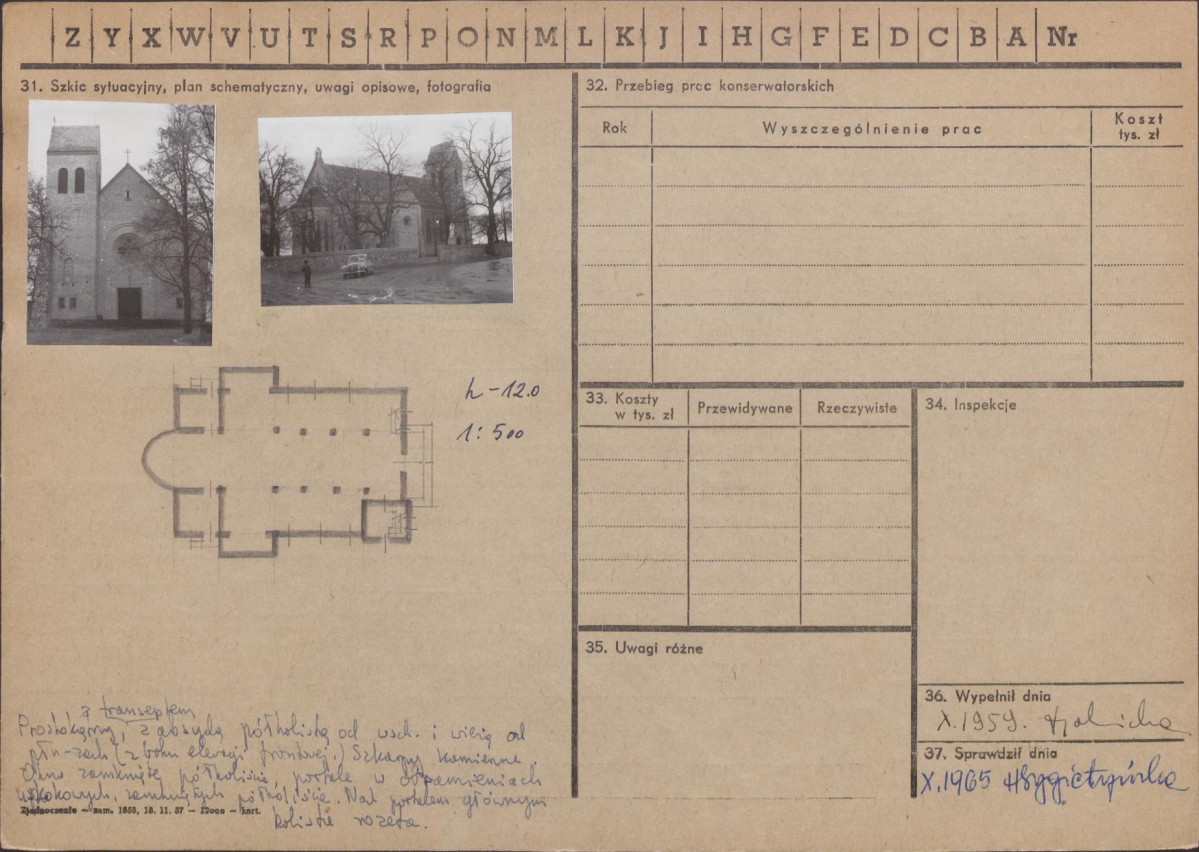 Z Y X W V U T S R P O N M L K J I H G F E D C B A Nr
31. Szkic sytuacyjny, plan schematyczny, uwagi opisowe, fotografia
h - 12.0
1:500
z transeptem
Prostokątny, z absydą półkolistą od wsch. i wieżą od
płn-zach (z boku elewacji frontowej.) Szkarpy kamienne
Okna zamknięte półkoliście, portale w obramieniach
uskokowych, zamkniętych półkoliście. Nad portalem głównym
kolista rozeta.
Zjednoczenie — zam. 1855, 16. 11. 57 — 12000 — kart.
32. Przebieg prac konserwatorskich
Rok
Wyszczególnienie prac
Koszt
tys. zł
33. Koszty
w tys. zł
Przewidywane
Rzeczywiste
34. Inspekcje
35. Uwagi różne
36. Wypełnił dnia
X.1959.
37. Sprawdził dnia
X.1965